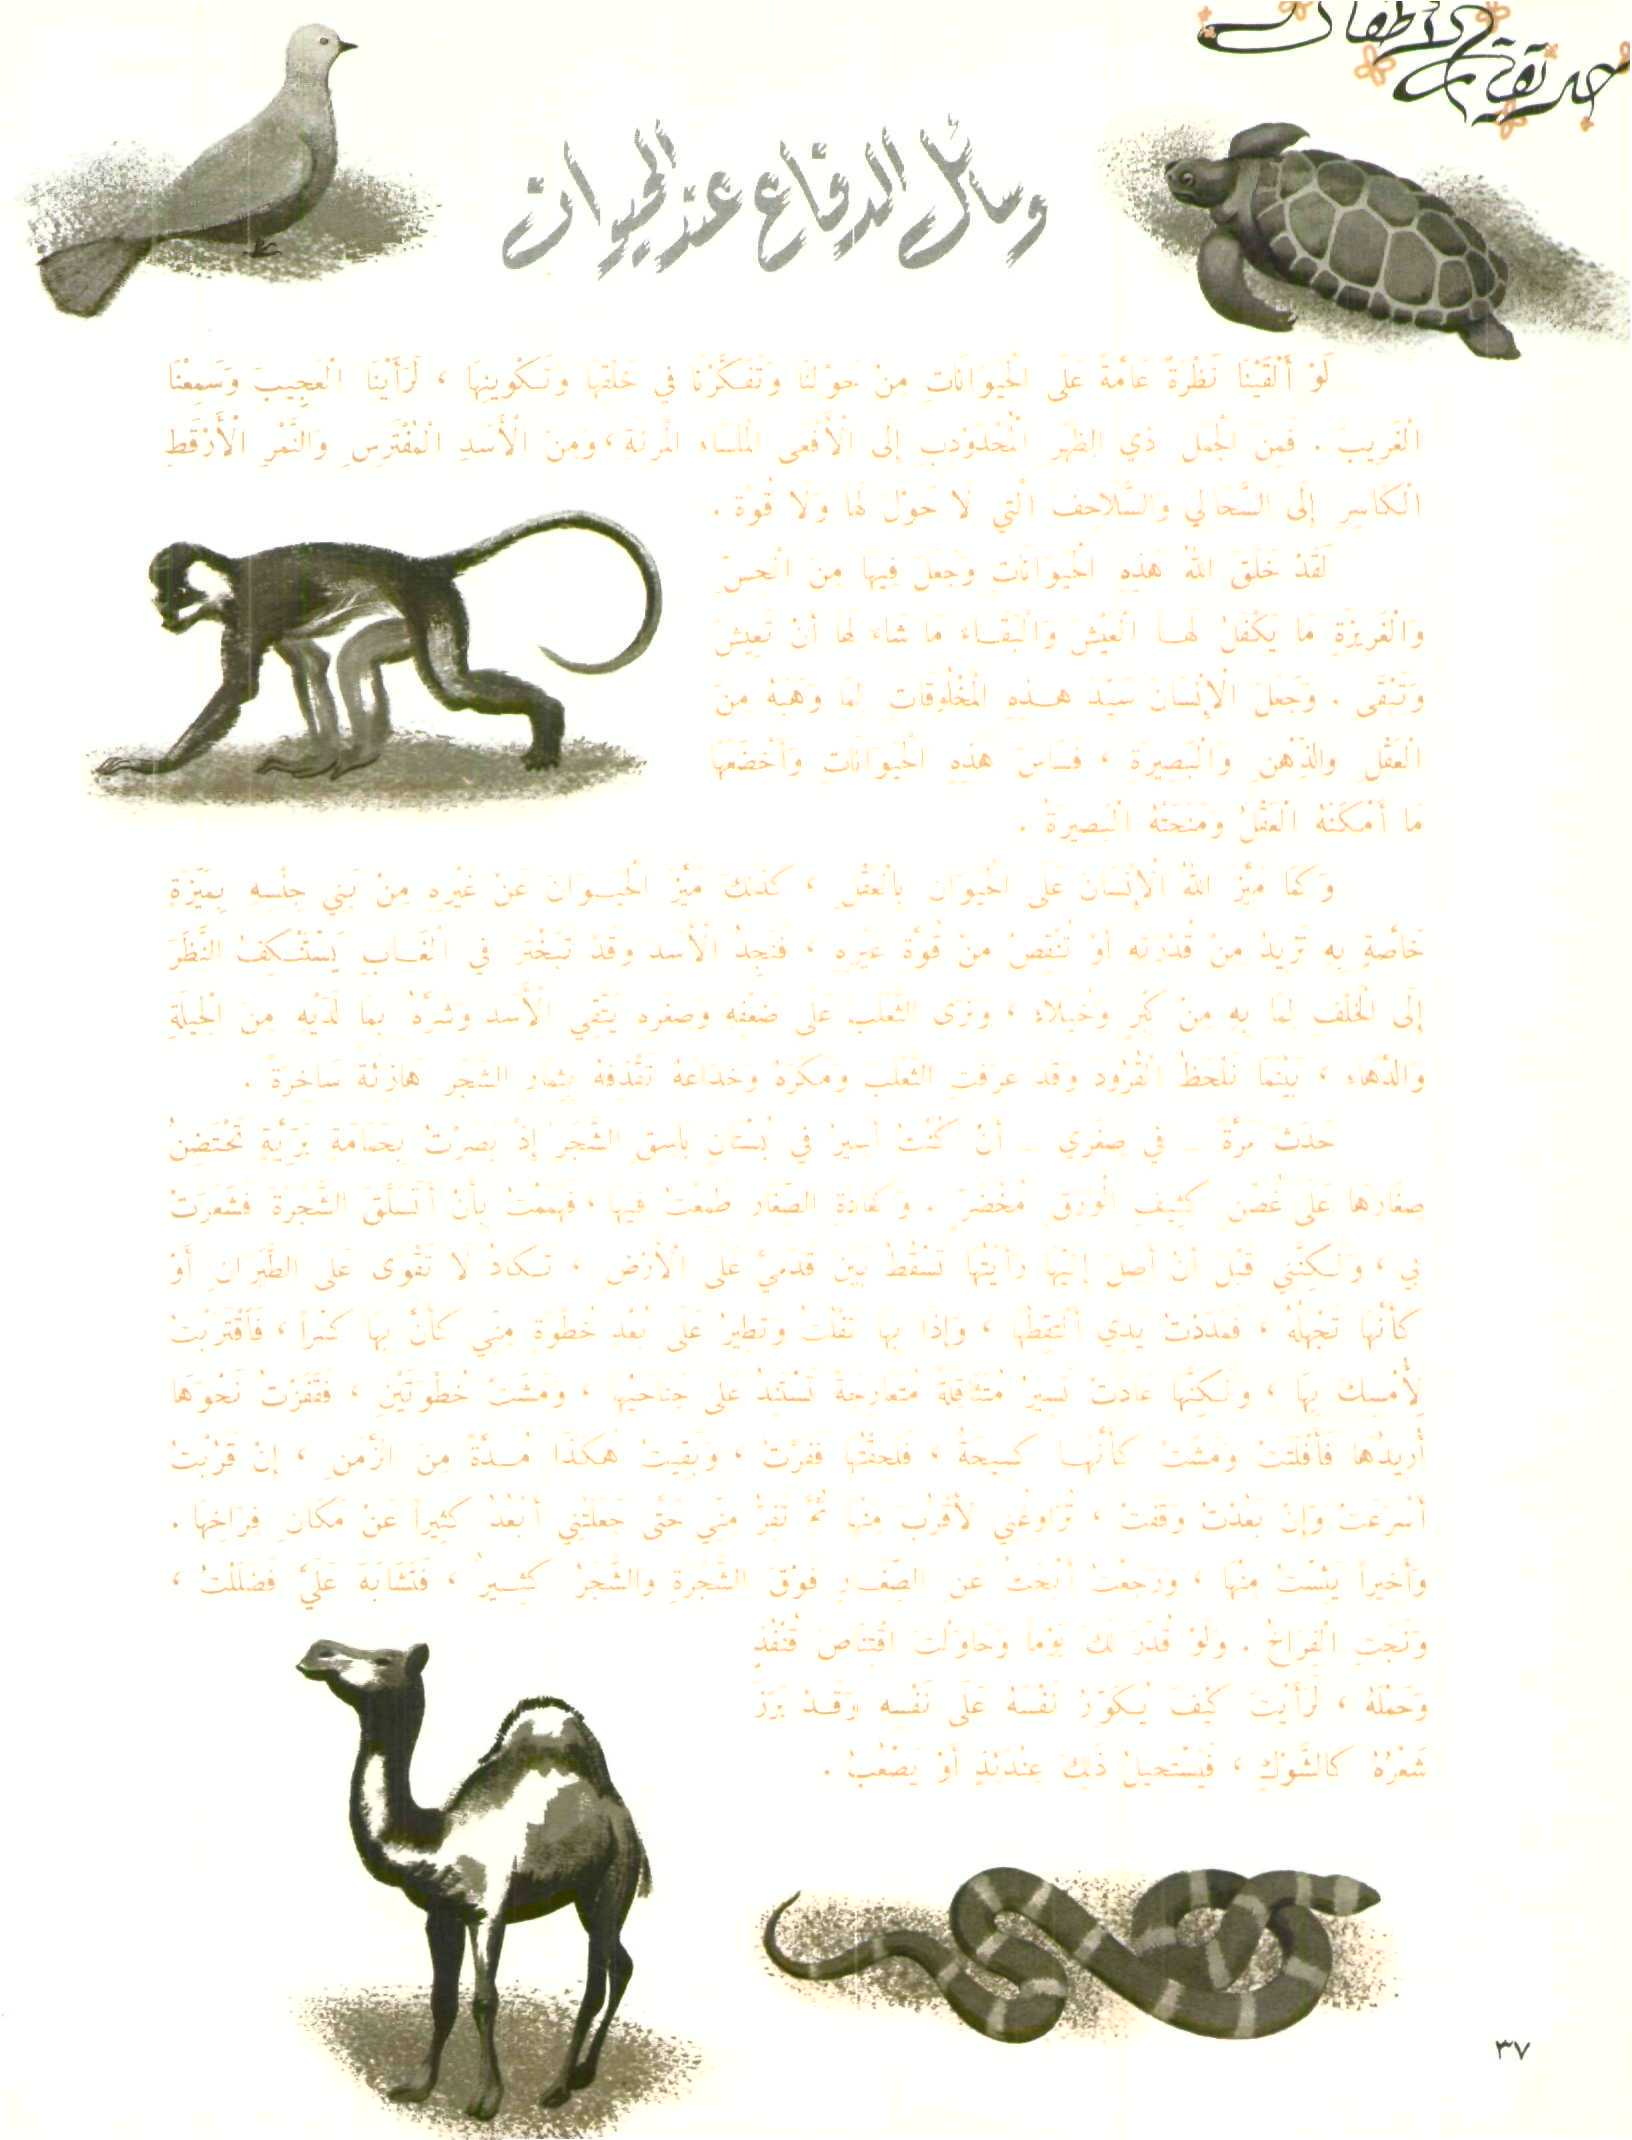 حديقة الأطفال
وسائل الدفاع عند الحيوان
لَوْ أَلْقَيْنَا نَظْرَةً عَامَّةً عَلَى الْحَيَوَانَاتِ مِنْ حَوْلِنَا وَتَفَكَّرْنَا فِي خَلْقِهَا وَتَكْوِينِهَا ، لَرَأَيْنَا الْعَجِيبَ وَسَمِعْنَا
الْغَرِيبَ . فَمِنَ الْجَمَلِ ذِي الظَّهْرِ الْمُحْدَوْدِبِ إِلَى الْأَفْعَى الْمَلْسَاءِ الْمَرِنَةِ ، وَمِنَ الْأَسَدِ الْمُفْتَرِسِ وَالنَّمْرِ الْأَرْقَطِ
الْكَاسِرِ إِلَى السَّحَالِي وَالسَّلَاحِفِ الَّتِي لَا حَوْلَ لَهَا وَلَا قُوَّةَ .
لَقَدْ خَلَقَ اللهُ هَذِهِ الْحَيَوَانَاتِ وَجَعَلَ فِيهَا مِنَ الْحِسِّ
وَالْغَرِيزَةِ مَا يَكْفَلُ لَهَا الْعَيْشَ وَالْبَقَاءَ مَا شَاءَ لَهَا أَنْ تَعِيشَ
وَتَبْقَى . وَجَعَلَ الْإِنْسَانَ سَيِّدَ هَذِهِ الْمَخْلُوقَاتِ لِمَا وَهَبَهُ مِنَ
الْعَقْلِ وَالذِّهْنِ وَالْبَصِيرَةِ ، فَسَاسَ هَذِهِ الْحَيَوَانَاتِ وَأَخْضَعَهَا
مَا أَمْكَنَهُ الْعَقْلُ وَمَنَحَتْهُ الْبَصِيرَةُ .
وَكَمَا مَيَّزَ اللهُ الْإِنْسَانَ عَلَى الْحَيَوَانِ بِالْعَقْلِ ، كَذَلِكَ مَيَّزَ الْحَيَوَانَ عَنْ غَيْرِهِ مِنْ بَنِي جِنْسِهِ بِمَيْزَةٍ
خَاصَّةٍ بِهِ تَزِيدُ مِنْ قُدْرَتِهِ أَوْ تُنْقِصُ مِنْ قُوَّةِ غَيْرِهِ ، فَنَجِدُ الْأَسَدَ وَقَدْ تَبَخْتَرَ فِي الْغَابِ يَسْتَنْكِفُ النَّظَرَ
إِلَى الْخَلْفِ لِمَا بِهِ مِنْ كِبَرٍ وَخُيَلَاءَ ، وَنَرَى الثَّعْلَبَ عَلَى ضَعْفِهِ وَصِغَرِهِ يَتَّقِي الْأَسَدَ وَشَرَّهُ بِمَا لَدَيْهِ مِنَ الْحِيلَةِ
وَالدَّهَاءِ ، بَيْنَمَا نَلْحَظُ الْقُرُودَ وَقَدْ عَرَفَتِ الثَّعْلَبَ وَمَكْرَهُ وَخِدَاعَهُ تَقْذِفُهُ بِثِمَارِ الشَّجَرِ هَازِئَةً سَاخِرَةً .
حَدَثَ مَرَّةً – فِي صِغَرِي – أَنْ كُنْتُ أَسِيرُ فِي بُسْتَانٍ بَاسِقِ الشَّجَرِ إِذْ بَصُرْتُ بِحَمَامَةٍ بَرِّيَّةٍ تَحْتَضِنُ
صِغَارَهَا عَلَى غُصْنٍ كَثِيفِ الْوَرَقِ مُخْضَرٍّ . وَكَعَادَةِ الصِّغَارِ طَمِعْتُ فِيهَا ، فَهَمَمْتُ بِأَنْ أَتَسَلَّقَ الشَّجَرَةَ فَشَعَرَتْ
بِي ، وَلَكِنَّنِي قَبْلَ أَنْ أَصِلَ إِلَيْهَا رَأَيْتُهَا تَسْقُطُ بَيْنَ قَدَمَيَّ عَلَى الْأَرْضِ ، تَكَادُ لَا تَقْوَى عَلَى الطَّيَرَانِ أَوْ
كَأَنَّهَا تَجْهَلُهُ ، فَمَدَدْتُ يَدِي أَلْتَقِطُهَا ، وَإِذَا بِهَا تَفْلُتُ وَتَطِيرُ عَلَى بُعْدِ خُطْوَةٍ مِنِّي كَأَنَّ بِهَا كَسْراً ، فَاقْتَرَبْتُ
لِأُمْسِكَ بِهَا ، وَلَكِنَّهَا عَادَتْ تَسِيرُ مُتَثَاقِلَةً مُتَعَارِجَةً تَسْتَنِدُ عَلَى جَنَاحَيْهَا ، وَمَشَتْ خُطْوَتَيْنِ ، فَقَفَزْتُ نَحْوَهَا
أُرِيدُهَا فَأَفْلَتَتْ وَمَشَتْ كَأَنَّهَا كَسِيحَةٌ ، فَلَحِقْتُهَا فَفَرَّتْ ، وَبَقِيتُ هَكَذَا مُدَّةً مِنَ الزَّمَنِ ، إِنْ قَرُبْتُ
أَسْرَعَتْ وَإِنْ بَعُدْتُ وَقَفَتْ ، تُرَاوِغُنِي لِأَقْرُبَ مِنْهَا ثُمَّ تَفِرُّ مِنِّي حَتَّى جَعَلَتْنِي أَبْعُدُ كَثِيراً عَنْ مَكَانِ فِرَاخِهَا .
وَأَخِيراً يَئِسْتُ مِنْهَا ، وَرَجَعْتُ أَبْحَثُ عَنِ الصِّغَارِ فَوْقَ الشَّجَرَةِ وَالشَّجَرُ كَثِيرٌ ، فَتَشَابَهَ عَلَيَّ فَضَلَلْتُ ،
وَنَجَتِ الْفِرَاخُ . وَلَوْ قُدِّرَ لَكَ يَوْماً وَحَاوَلْتَ اقْتِنَاصَ قُنْفُذٍ
وَحَمْلَهُ ، لَرَأَيْتَ كَيْفَ يُكَوِّرُ نَفْسَهُ عَلَى نَفْسِهِ وَقَدْ بَرَزَ
شَعْرُهُ كَالشَّوْكِ ، فَيَسْتَحِيلُ ذَلِكَ عِنْدَئِذٍ أَوْ يَصْعُبُ .
٣٧